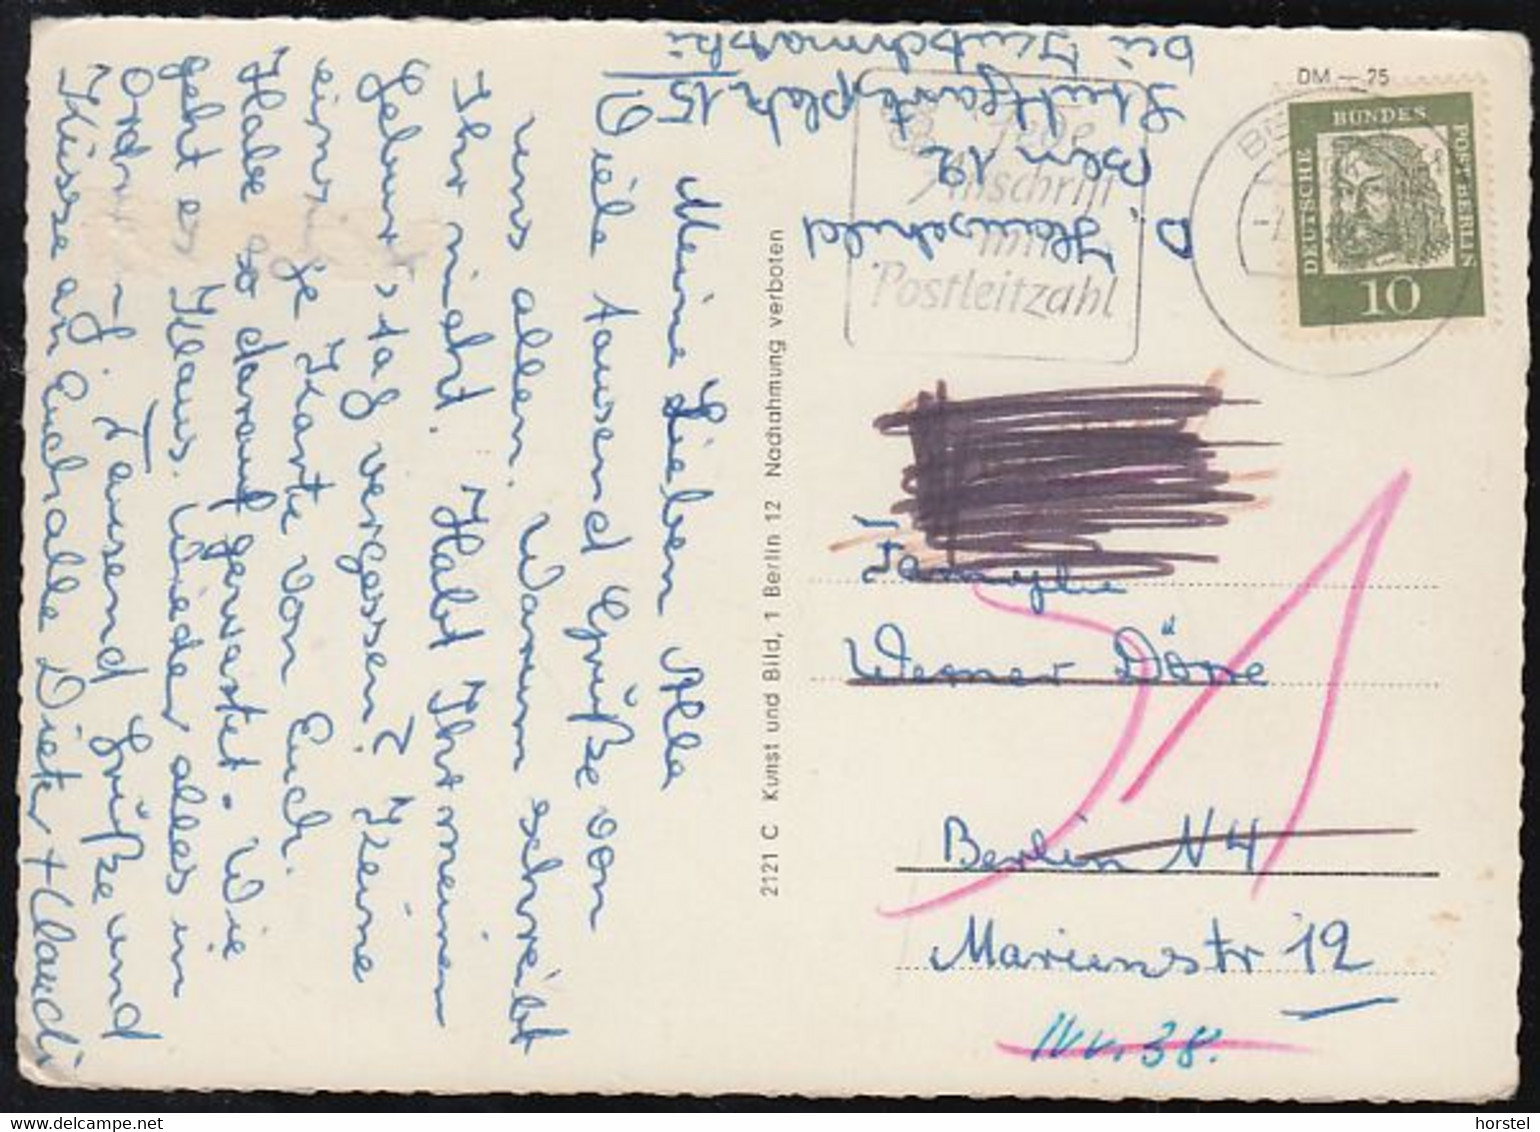 Meine Lieben Alle
Viele tausend Grüße von
uns allen. Warum schreibt
Ihr nicht. Habt Ihr meinen
Geburtstag vergessen? Keine
einzige Karte von Euch.
Habe so darauf gewartet. Wie
geht es Klaus. Wieder alles in
Ordnung. Tausend Grüße und
Küsse an Euch alle Dieter + Claudi
D Hauschild
Bln 12
Stuttgarterplatz 15
bei
2121 C Kunst und Bild, 1 Berlin 12 Nachahmung verboten
DM — 75
DEUTSCHE BUNDES POST BERLIN
10
Anschrift
mit
Postleitzahl
Familie
Werner
Berlin N4
Marienstr 12
38.